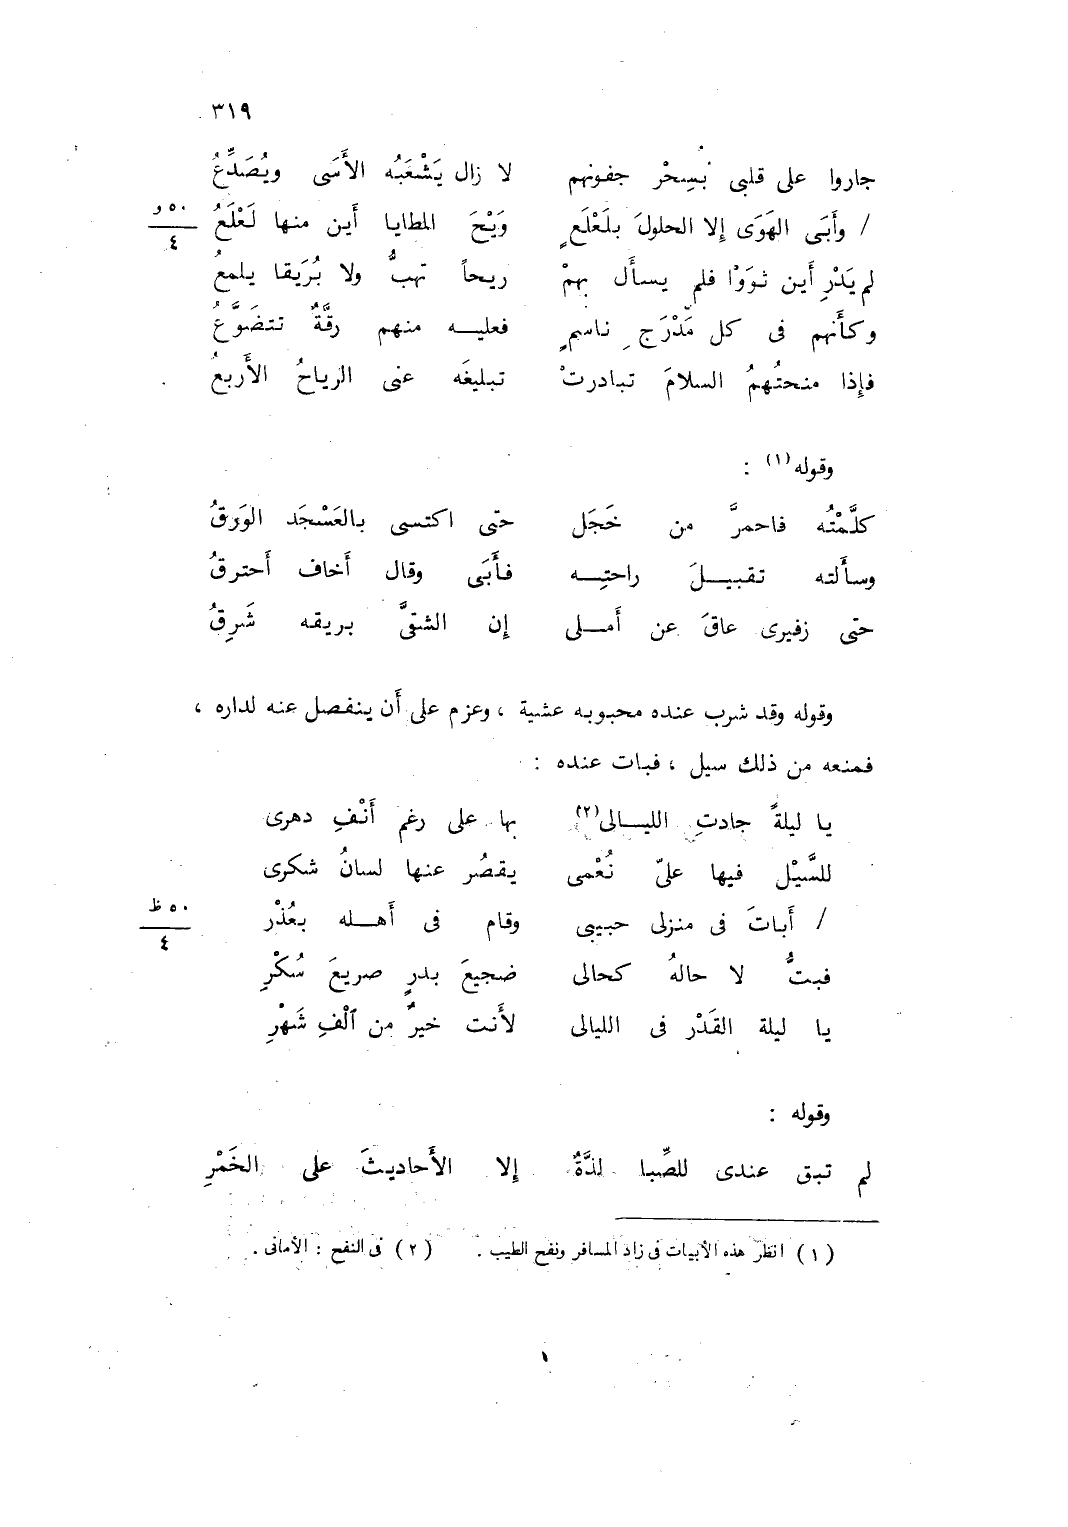 ٣١٩
جاروا على قلبى بسِحْر جفونهم لا زال يَشْعَبُه الأَسَى ويُصَدِّعُ
/ وأَبَى الهَوَى إلا الحلولَ بلَعْلَعٍ وَيْحَ المطايا أين منها لَعْلَعُ
٥٠ و
٤
لم يَدْرِ أَين ثوَوْا فلم يسأَل بهمْ ريحاً تهبُّ ولا بُرَيقا يلمعُ
وكأَنهم فى كل مَدْرَجِ ناسمٍ فعليه منهم رقَّةٌ تتضَوَّعُ
فإِذا منحتُهمُ السلامَ تبادرتْ تبليغَه عنى الرياحُ الأَربعُ
وقوله (١) :
كلَّمْتُه فاحمرَّ من خَجَل حتى اكتسى بالعَسْجَد الوَرَقُ
وسأَلته تقبيلَ راحتِه فأَبَى وقال أَخاف أَحترقُ
حتى زفيرى عاقَ عن أَملى إِن الشقىَّ بريقه شَرِقُ
وقوله وقد شرب عنده محبوبه عشية ، وعزم على أَن ينفصل عنه لداره ،
فمنعه من ذلك سيل ، فبات عنده :
يا ليلةً جادتِ الليالى(٢) بها على رغم أَنْفِ دهرى
للسَّيْل فيها علىّ نُعْمى يقصُر عنها لسانُ شكرى
/ أَباتَ فى منزلى حبيبى وقام فى أَهله بعُذْر
٥٠ ظ
٤
فبتُّ لا حالهُ كحالى ضجيعَ بدرٍ صريعَ سُكْرٍ
يا ليلة القَدْر فى الليالى لأَنت خيرٌ من الْفِ شَهْرِ
وقوله :
لم تبق عندى للصِّبا لذَّةٌ إلا الأَحاديثَ على الخَمْرِ
(١) انظر هذه الأبيات فى زاد المسافر ونفح الطيب . (٢) فى النفح : الأمانى .